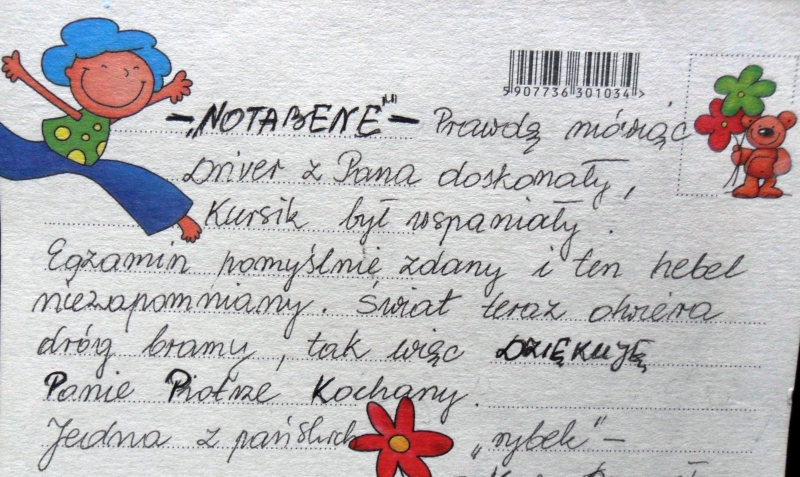 5907736301034>
-„NOTABENE"- Prawdę mówiąc
Driver z Pana doskonały,
Kursik był wspaniały.
Egzamin pomyślnie zdany i ten hebel
niezapomniany. Świat teraz otwiera
dróg bramy, tak więc DZIĘKUJĘ
Panie Piotrze Kochany.
Jedna z pańskich „rybek"-